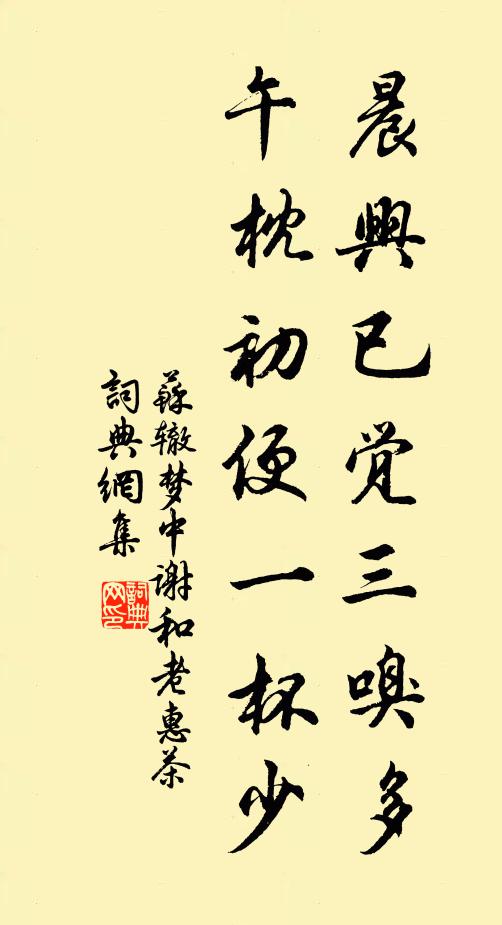 晨興已觉三嗅多
午枕初便一杯少
蘇辙梦中谢和老惠茶
詞典網集
詞典网印